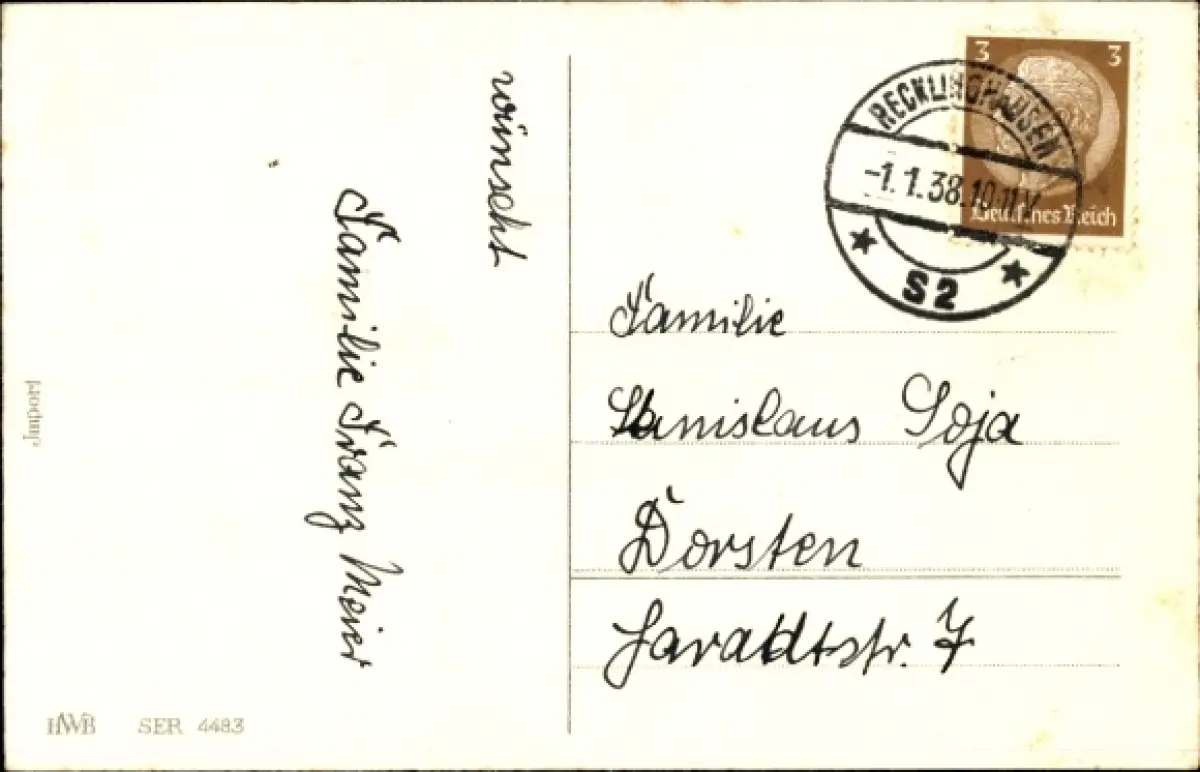 wünscht
Familie Franz Meier
Import
HWB SER 4483
3 3
Deutsches Reich
RECKLINGHAUSEN
-1.1.38.10-11V
S2
Familie
Stanislaus Soja
Dorsten
7